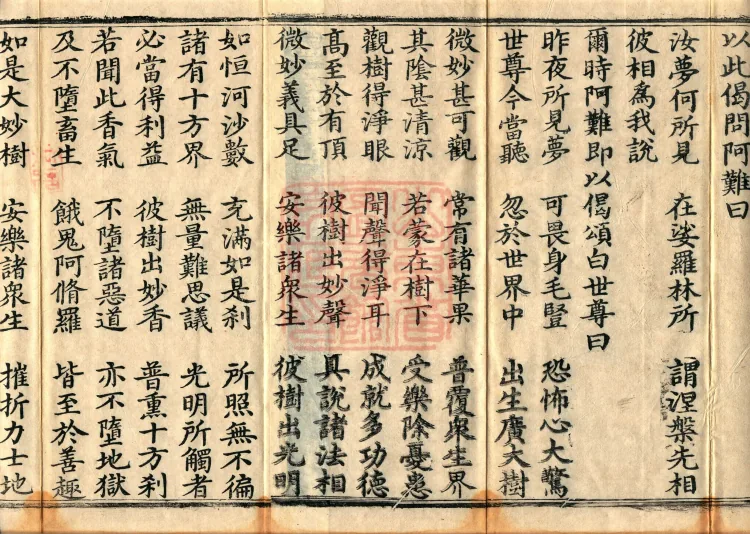 以此偈問阿難曰
汝夢何所見 在娑羅林所 謂涅槃先相
彼相為我說
爾時阿難即以偈頌白世尊曰
昨夜所見夢 可畏身毛豎 恐怖心大驚
世尊今當聽 忽於世界中 出生廣大樹
微妙甚可觀 常有諸華果 普覆眾生界
其陰甚清涼 若蒙在樹下 受樂除憂患
觀樹得淨眼 聞聲得淨耳 成就多功德
高至於有頂 彼樹出妙聲 具說諸法相
微妙義具足 安樂諸眾生 彼樹出光明
如恒河沙數 充滿如是剎 所照無不徧
諸有十方界 無量難思議 光明所觸者
必當得利益 彼樹出妙香 普熏十方刹
若聞此香氣 不墮諸惡道 亦不墮地獄
及不墮畜生 餓鬼阿脩羅 皆至於善趣
如是大妙樹 安樂諸眾生 摧折力士地